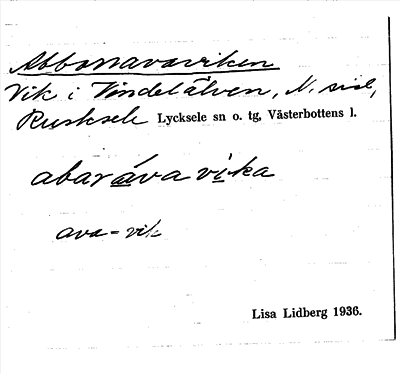 Abboravaviken
Vik i Vindelälven, N. sid,
Rusksele Lycksele sn o. tg, Västerbottens l.
abaráva vika
ava-vik
Lisa Lidberg 1936.